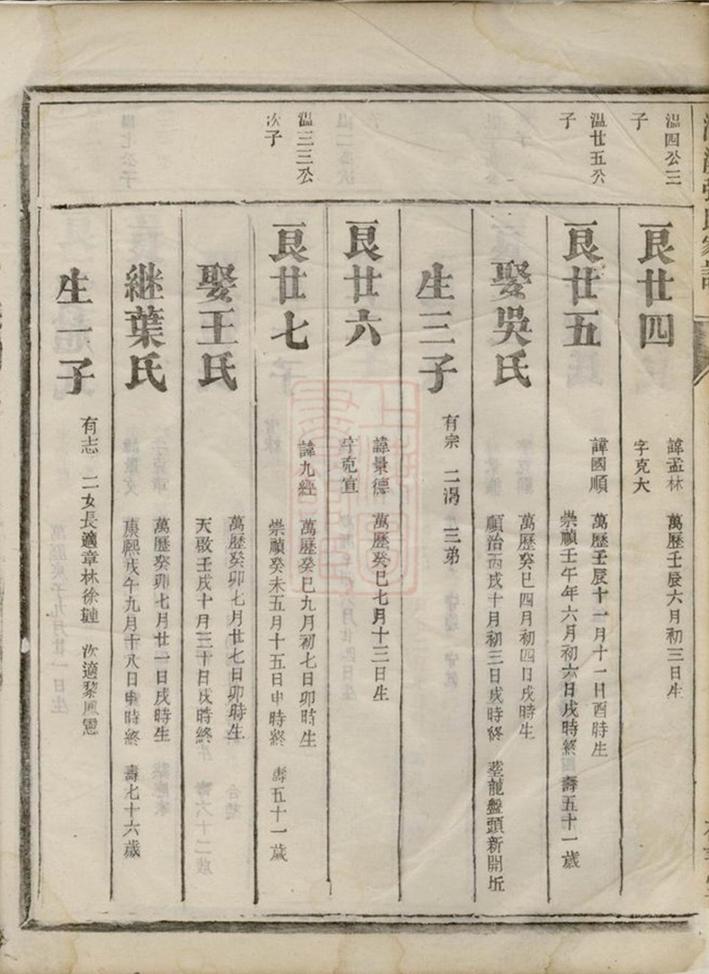 溫四公三
子
良廿四
諱孟林　萬歷壬辰六月初三日生
字克大
溫廿五公
子
良廿五
諱國順　萬歷壬辰十一月十一日酉時生
崇禎壬午年六月初六日戌時終　壽五十一歲
娶吳氏
萬歷癸巳四月初四日戌時生
順治丙戌十月初三日戌時終　塟龍盤頭新開坵
生三子
有宗　二渦　三弟
良廿六
諱景德　萬歷癸巳七月十三日生
字克宣
溫三三公
次子
良廿七
諱九經　萬歷癸巳九月初七日卯時生
崇禎癸未五月十五日申時終　壽五十一歲
娶王氏
萬歷癸卯七月廿七日卯時生
天啟壬戌十月三十日戌時終
継葉氏
萬歷癸卯七月廿一日戌時生
康熙戊午九月十八日申時終　壽七十六歲
生一子
有志　二女長適章林徐　次適黎鳳